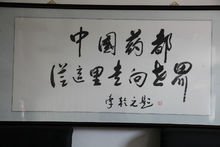 中国药都
从这里走向世界
李铁元题